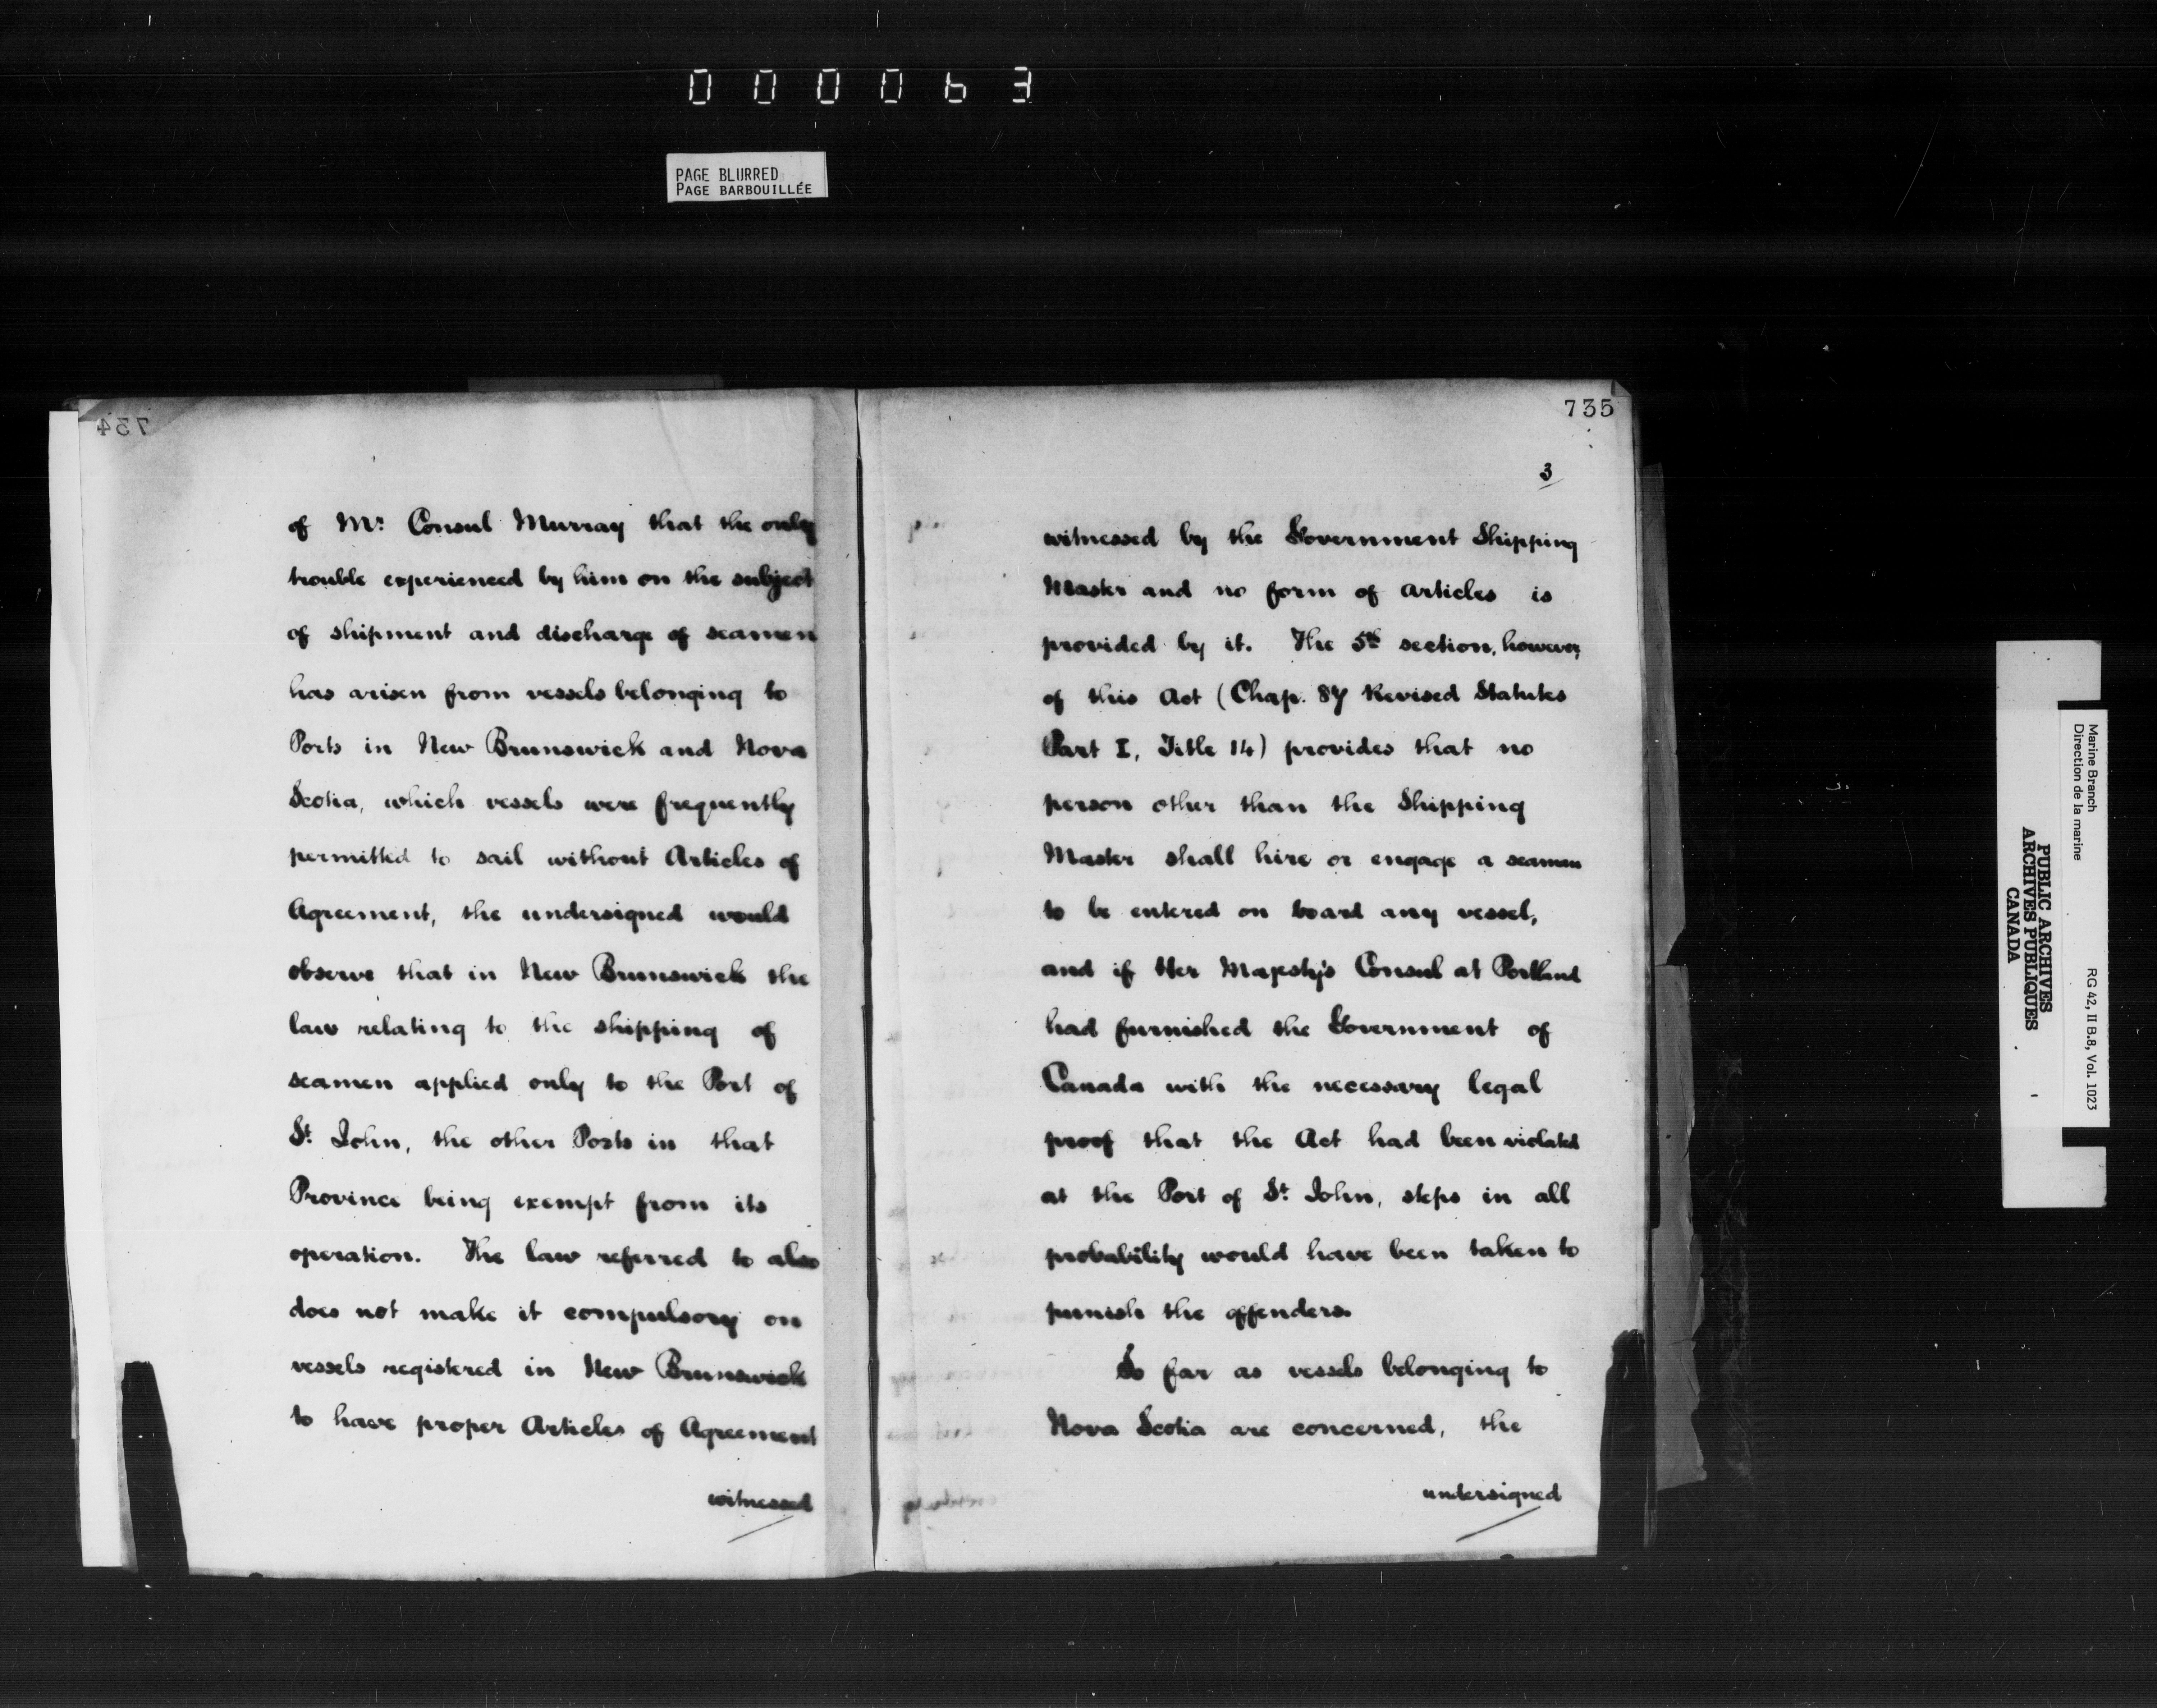 000063
PAGE BLURRED
PAGE BARBOUILLÉE
734
of Mr. Consul Murray that the only
trouble experienced by him on the subject
of shipment and discharge of seamen
has arisen from vessels belonging to
Ports in New Brunswick and Nova
Scotia, which vessels were frequently
permitted to sail without Articles of
Agreement, the undersigned would
observe that in New Brunswick the
law relating to the shipping of
seamen applied only to the Port of
St. John, the other Ports in that
Province being exempt from its
operation. The law referred to also
does not make it compulsory on
vessels registered in New Brunswick
to have proper Articles of Agreement
witnessed
735
3
witnessed by the Government Shipping
Master and no form of Articles is
provided by it. The 5th section, however,
of this Act (Chap. 87 Revised Statutes
Part I, Title 14) provides that no
person other than the Shipping
Master shall hire or engage a seaman
to be entered on board any vessel,
and if Her Majesty's Consul at Portland
had furnished the Government of
Canada with the necessary legal
proof that the Act had been violated
at the Port of St. John, steps in all
probability would have been taken to
punish the offenders.
So far as vessels belonging to
Nova Scotia are concerned, the
undersigned
Marine Branch
Direction de la marine
RG 42, II B.8, Vol. 1023
PUBLIC ARCHIVES
ARCHIVES PUBLIQUES
CANADA